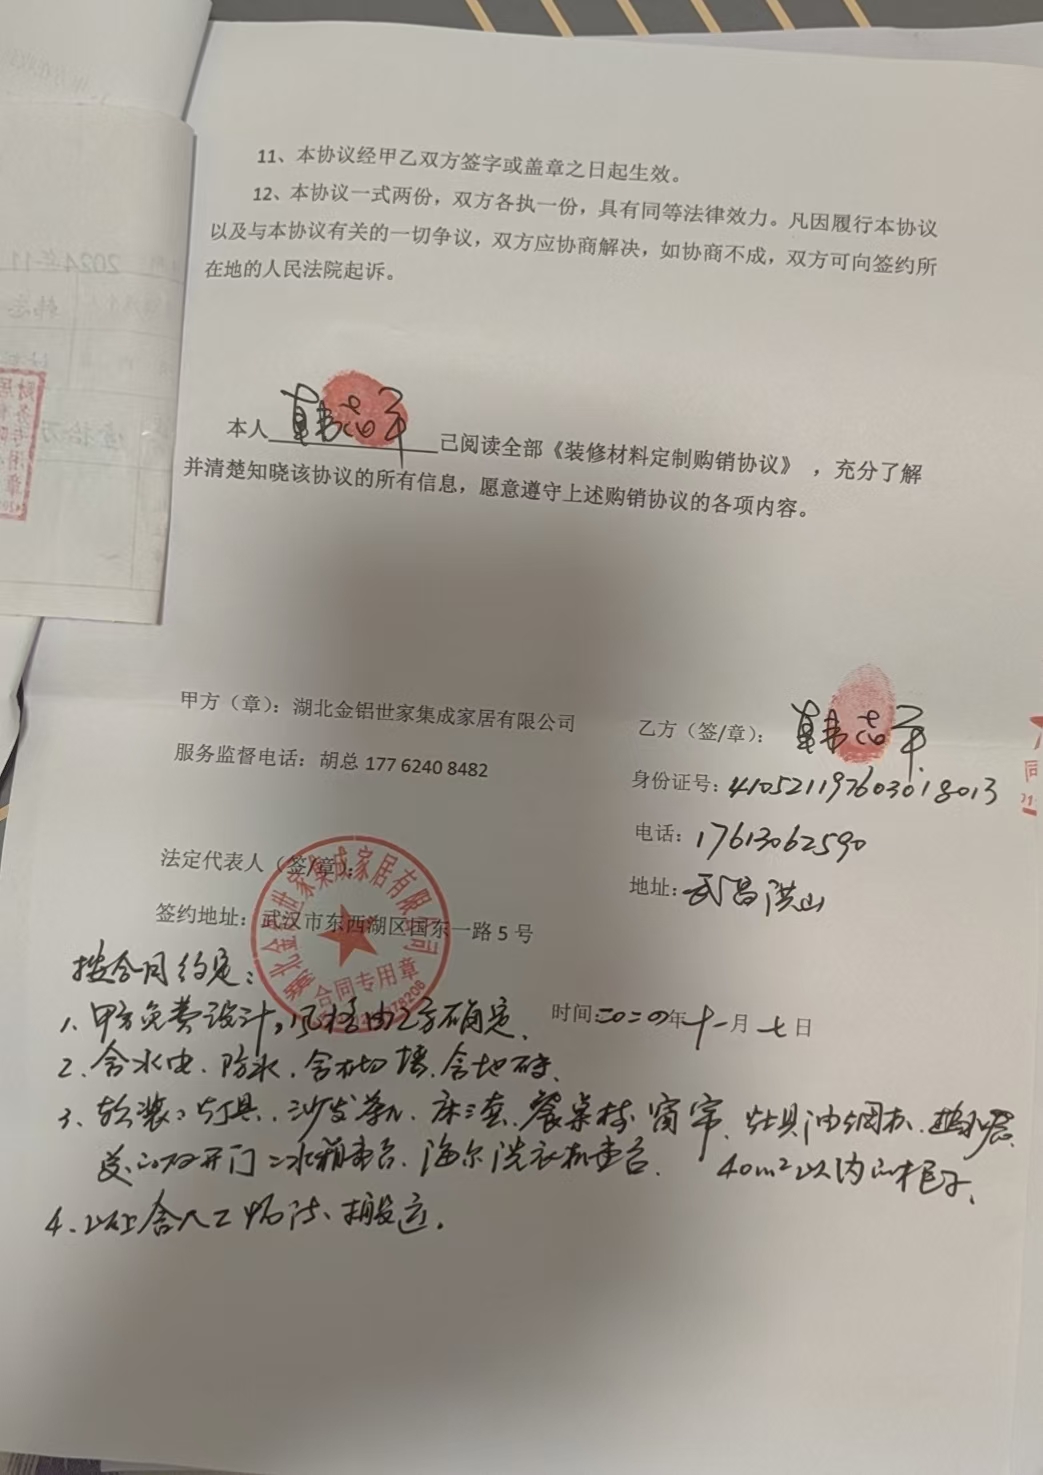 11、本协议经甲乙双方签字或盖章之日起生效。
12、本协议一式两份，双方各执一份，具有同等法律效力。凡因履行本协议
以及与本协议有关的一切争议，双方应协商解决，如协商不成，双方可向签约所
在地的人民法院起诉。
本人韩志平已阅读全部《装修材料定制购销协议》，充分了解
并清楚知晓该协议的所有信息，愿意遵守上述购销协议的各项内容。
甲方（章）：湖北金铝世家集成家居有限公司
乙方（签/章）：韩志平
服务监督电话：胡总 177 6240 8482
身份证号：410521197603018013
电话：17613062590
法定代表人（签/章）：
地址：武昌洪山
签约地址：武汉市东西湖区国东一路 5 号
湖北金铝世家集成家居有限公司
合同专用章
时间：二〇二四年十一月七日
按合同约定：
1、甲方免费设计，风格由乙方确定、
2、含水电、防水、含砌墙、含地砖、
3、软装：灯具、沙发茶几、床三套、餐桌椅、窗帘、灶具油烟机、
送一双开门冰箱壹台、海尔洗衣机壹台、40m²以内柜子、
4、以上含人工 搬运。
2024年11
财务专用章